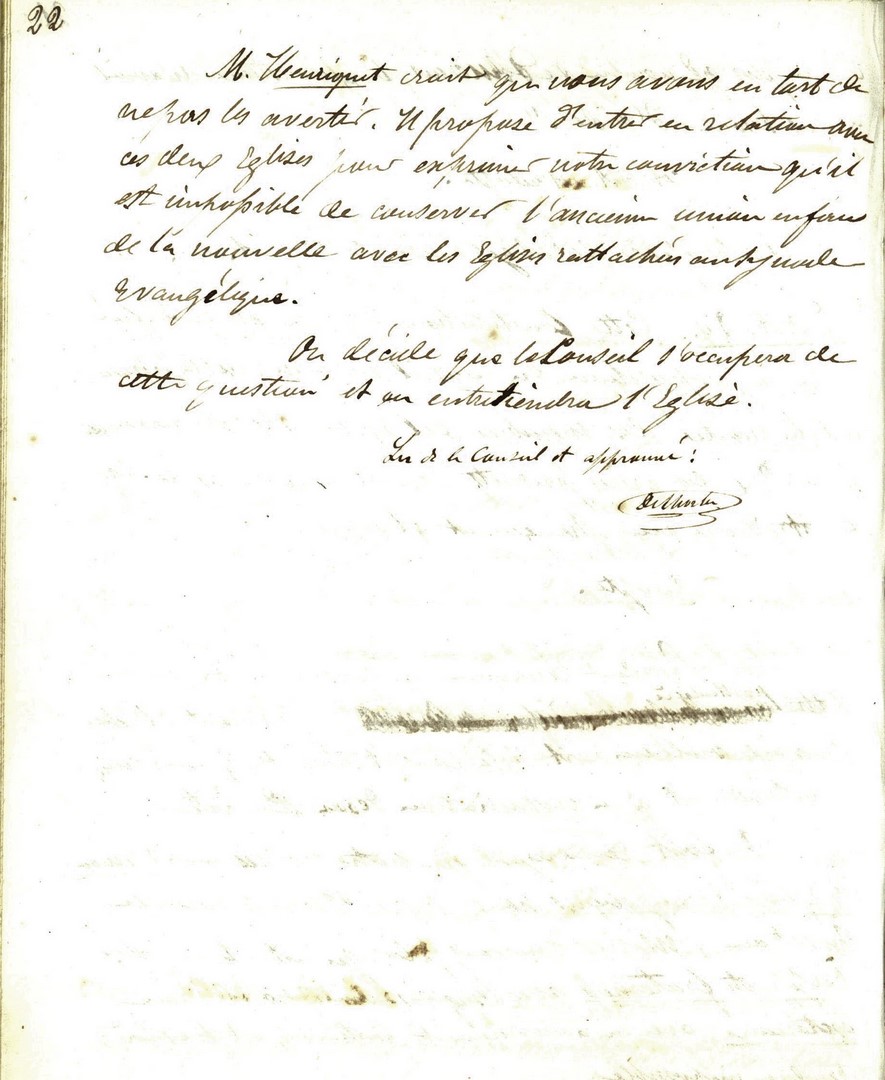 22
M. Henriquet croit que nous avons eu tort de
ne pas les avertir. Il propose d'entrer en relation avec
ces deux Eglises pour exprimer notre conviction qu'il
est impossible de conserver l'ancienne union en face
de la nouvelle avec les Eglises rattachées au Synode
Evangélique.
On décide que le Conseil s'occupera de
cette question et en entretiendra l'Eglise.
Lu de le Conseil et approuvé :